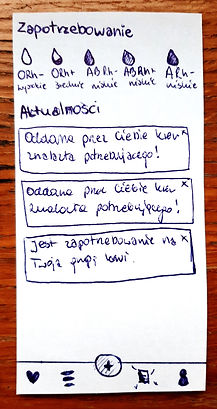 Zapotrzebowanie
0Rh- 0Rh+ ABRh- ABRh+ ARh-
wysokie średnie niskie niskie niskie
Aktualności
Oddana przez Ciebie krew x
znalazła potrzebującego!
Oddana przez Ciebie krew x
znalazła potrzebującego!
Jest zapotrzebowanie na x
Twoją grupę krwi.